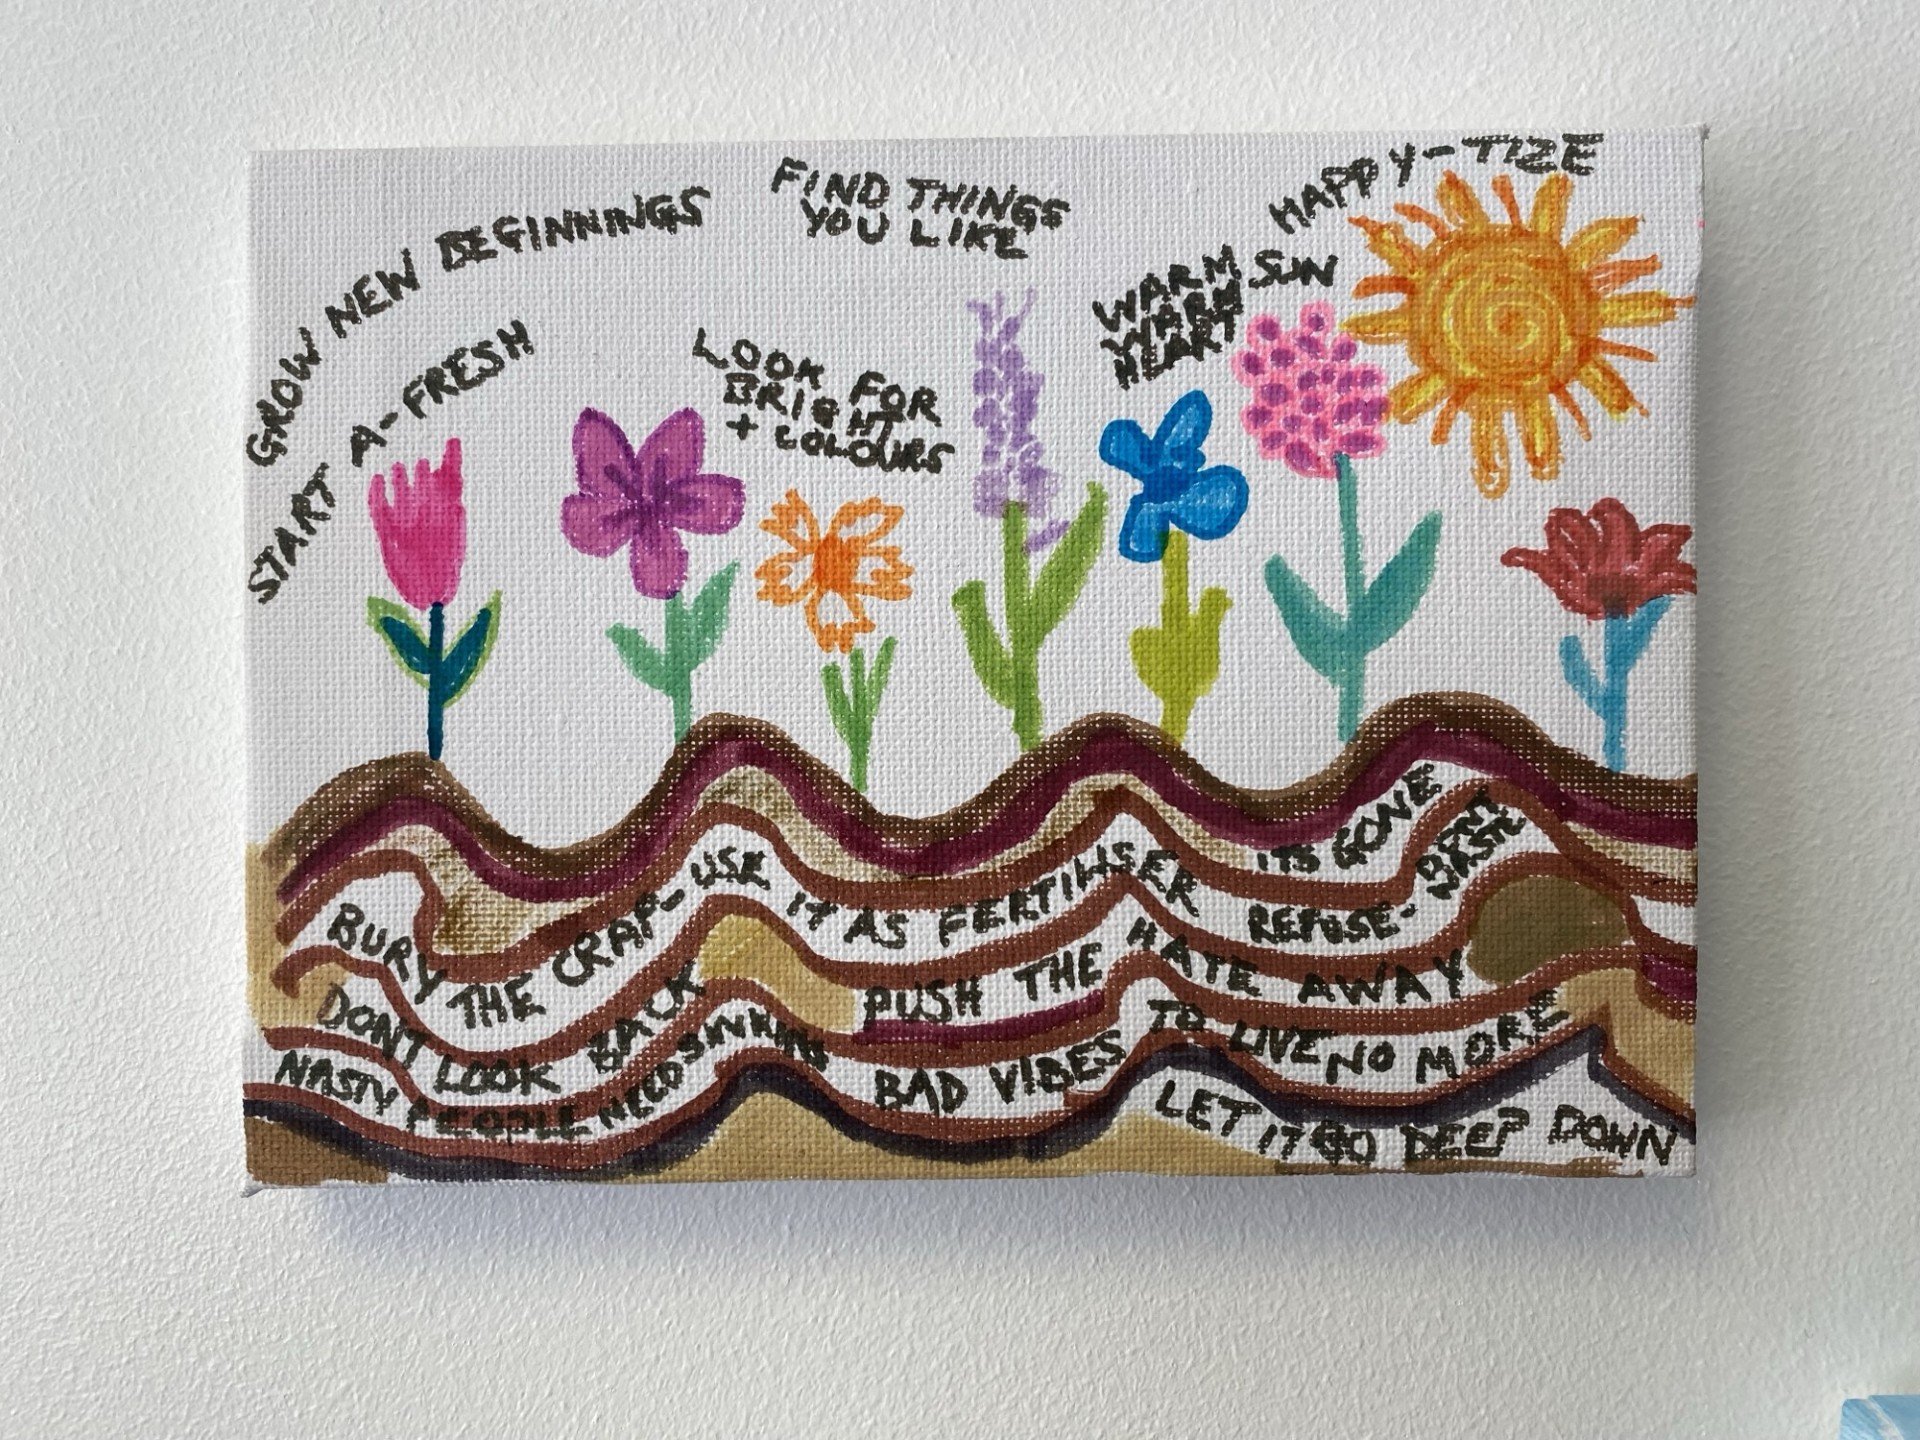 GROW NEW BEGINNINGS
START A-FRESH
FIND THINGS
YOU LIKE
LOOK FOR
BRIGHT
+ COLOURS
HAPPY-TIZE
WARM SUN
WARM
HEART
BURY THE CRAP-USE IT AS FERTILISER
ITS GONE
REFUSE-DONT
WASTE
DONT LOOK BACK
PUSH THE HATE AWAY
NASTY PEOPLE NEED SINKING
BAD VIBES TO LIVE NO MORE
LET IT GO DEEP DOWN